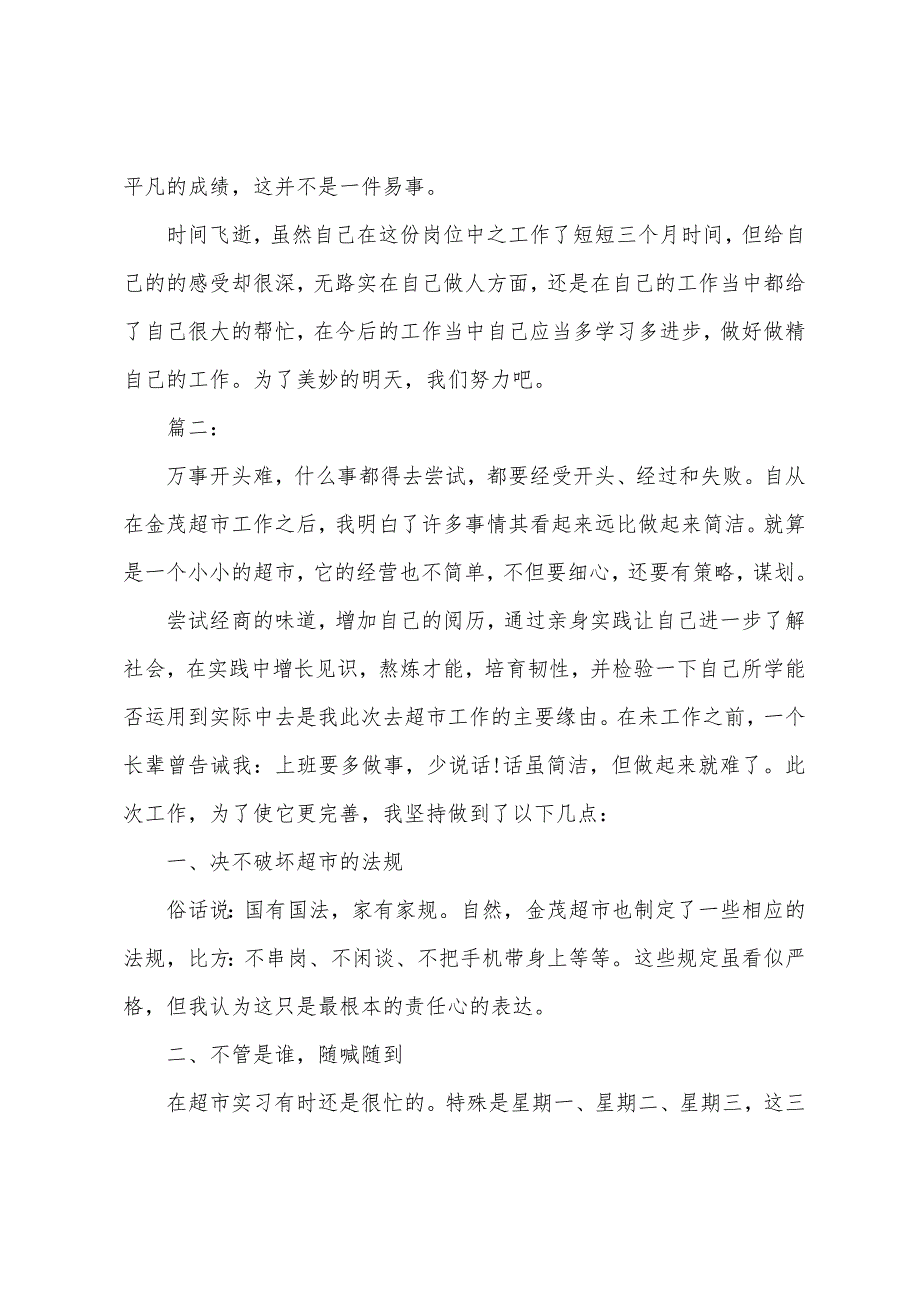 平凡的成绩，这并不是一件易事。
时间飞逝，虽然自己在这份岗位中之工作了短短三个月时间，但给自
己的的感受却很深，无路实在自己做人方面，还是在自己的工作当中都给
了自己很大的帮忙，在今后的工作当中自己应当多学习多进步，做好做精
自己的工作。为了美妙的明天，我们努力吧。
篇二：
万事开头难，什么事都得去尝试，都要经受开头、经过和失败。自从
在金茂超市工作之后，我明白了许多事情其看起来远比做起来简洁。就算
是一个小小的超市，它的经营也不简单，不但要细心，还要有策略，谋划。
尝试经商的味道，增加自己的阅历，通过亲身实践让自己进一步了解
社会，在实践中增长见识，熬炼才能，培育韧性，并检验一下自己所学能
否运用到实际中去是我此次去超市工作的主要缘由。在未工作之前，一个
长辈曾告诫我：上班要多做事，少说话!话虽简洁，但做起来就难了。此
次工作，为了使它更完善，我坚持做到了以下几点：
一、决不破坏超市的法规
俗话说：国有国法，家有家规。自然，金茂超市也制定了一些相应的
法规，比方：不串岗、不闲谈、不把手机带身上等等。这些规定虽看似严
格，但我认为这只是最根本的责任心的表达。
二、不管是谁，随喊随到
在超市实习有时还是很忙的。特殊是星期一、星期二、星期三，这三